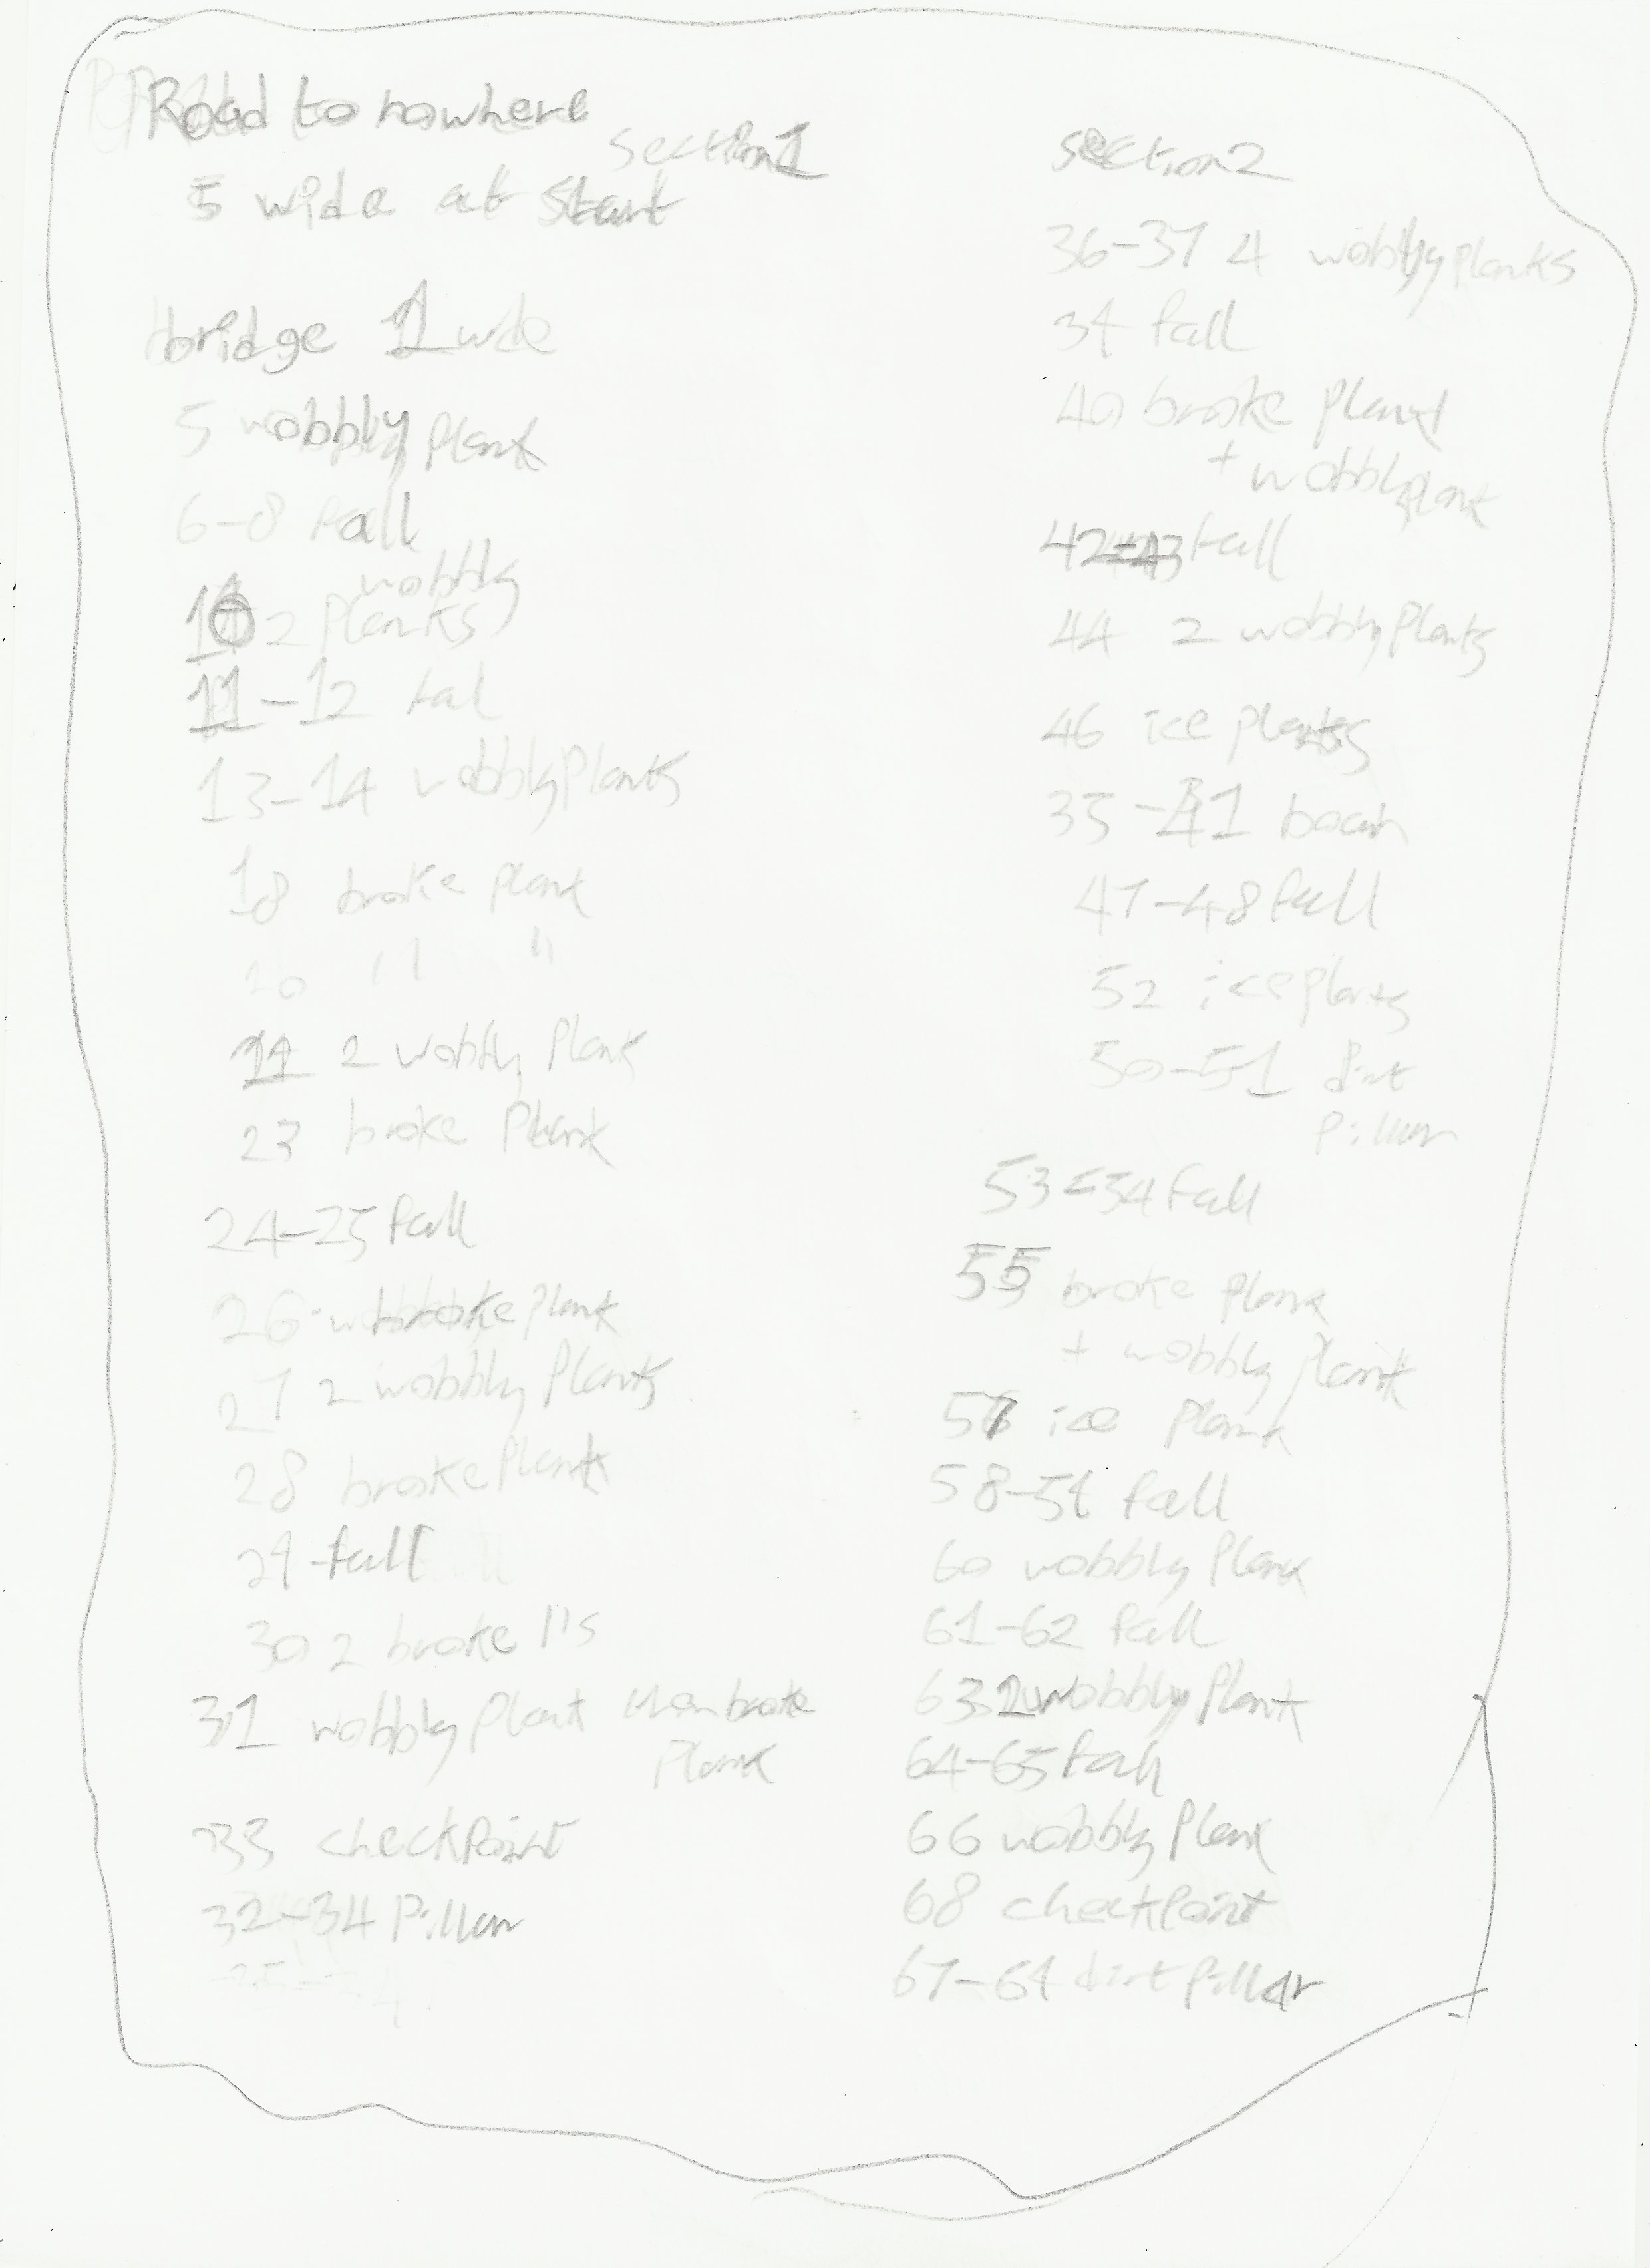 Road to nowhere
section1
5 wide at Start
bridge 1 wide
5 wobbly Plank
6-8 fall
wobbly
10 2 Planks
11-12 fall
13-14 wobbly Planks
18 broke plank
20 " "
2 wobbly Plank
23 broke Plank
24-25 fall
26 broke plank
27 2 wobbly Planks
28 broke Plank
29 fall
30 2 broke "s
31 wobbly Plank then broke
Plank
33 checkPoint
32-34 Pillar
section2
36-37 4 wobbly Planks
39 fall
40 broke Plank
+ wobbly plank
42-43 fall
44 2 wobbly Planks
46 ice planks
35-41
47-48 fall
52 ice planks
50-51 dirt
Pillar
53-54 fall
55 broke plank
+ wobbly plank
57 ice Plank
58-59 fall
60 wobbly Plank
61-62 fall
63 wobbly Plank
64-65 fall
66 wobbly Plank
68 checkPoint
67-69 dirt Pillar